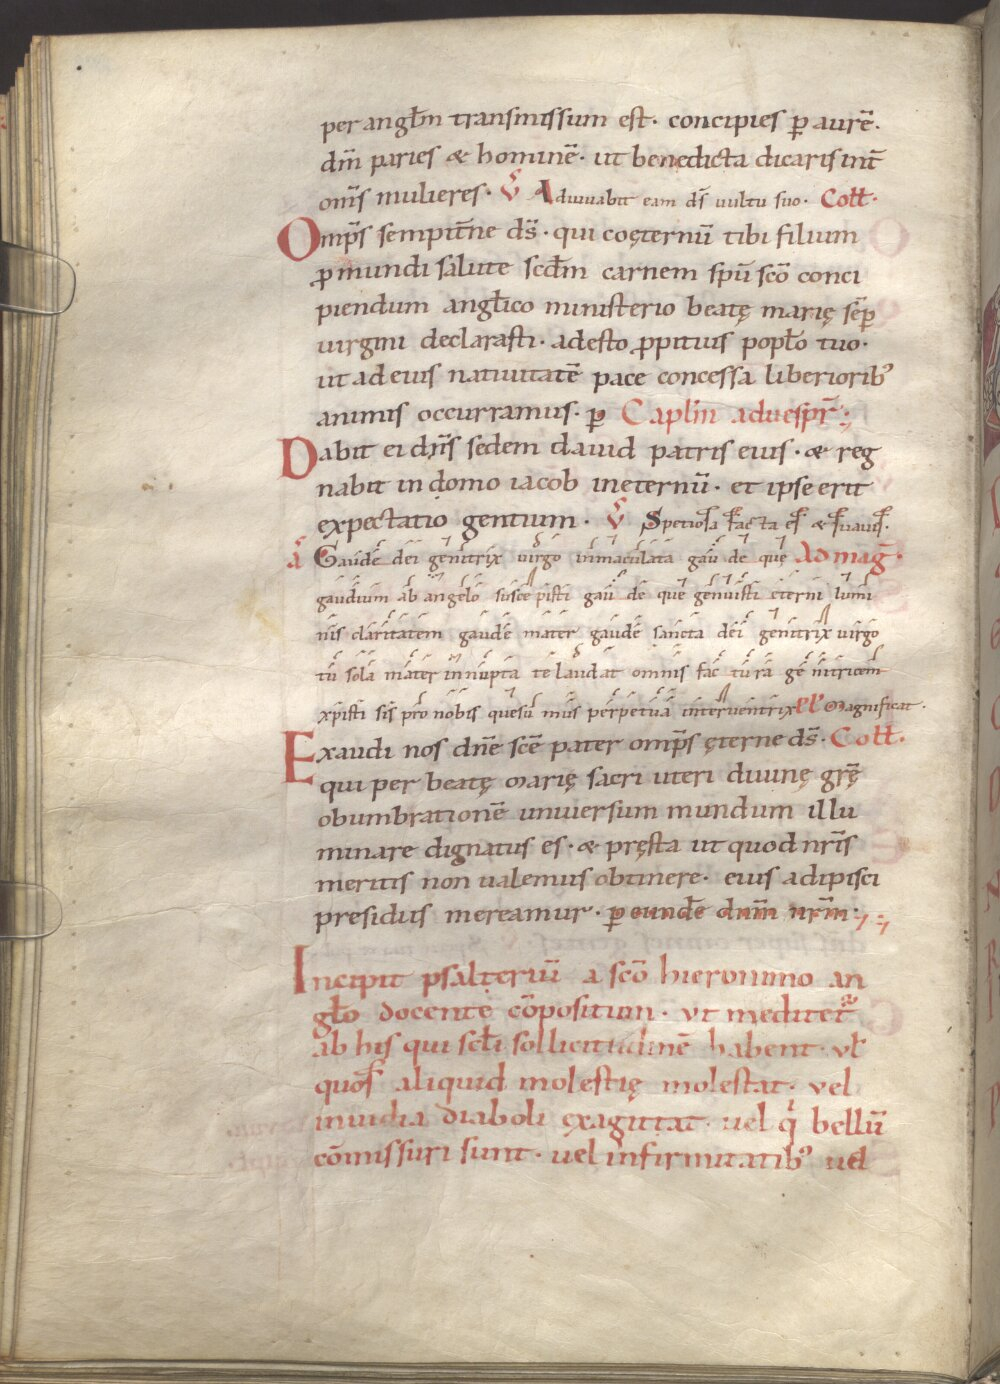 per angłm transmissum est· concipies ꝑ aurē·
dm̄ paries & hominē· ut benedicta dicaris int̄
om̄s mulieres· V̄ Adiuuabit eam ds̄ uultu suo· Coll̄·
Omp̄s sempit̄ne ds̄· qui coęternū tibi filium
ꝓ mundi salute scd̄m carnem sp̄u scō conci
piendum angłico ministerio beatę marię sēp
uirgini declarasti· adesto ꝓpitius popło tuo·
ut ad eius natiuitatē pace concessa liberiorib᾿
animis occurramus· ꝑ Caplm̄ ad uespr̄·;
Dabit ei dn̄s sedem dauid patris eius· & reg
nabit in domo iacob in eternū· et ipse erit
expectatio gentium· V̄ Spetiosa facta es & suauis·
ā Gaude dei genitrix uirgo inmaculata gau de que Ad mag̃·
gaudium ab angelo susce pisti gau de que genuisti eterni lumi
nis claritatem gaude mater gaude sancta dei genitrix uirgo
tu sola mater innupta te laudat omnis fac tura ge nitricem
xpisti sis pro nobis quesu mus perpetua interuentrix Magnificat·
Exaudi nos dn̄e scē pater omp̄s ęterne ds̄· Coll̄·
qui per beatę marię sacri uteri diuinę gr̄ę
obumbrationē uniuersum mundum illu
minare dignatus es· & pręsta ut quod nr̄is
meritis non ualemus obtinere· eius adipisci
presidiis mereamur· ꝑ eundē dnm̄ nrm̄·,·;
Incipit psalteriū a scō hieronimo an
gło docente cōpositum· ut meditet̃
ab his qui scłi sollicitudinē habent· uł
quos aliquid molestię molestat· vel
inuidia diaboli exagitat· uel q̇ bellū
cōmissuri sunt· uel infirmitatib᾿ uel